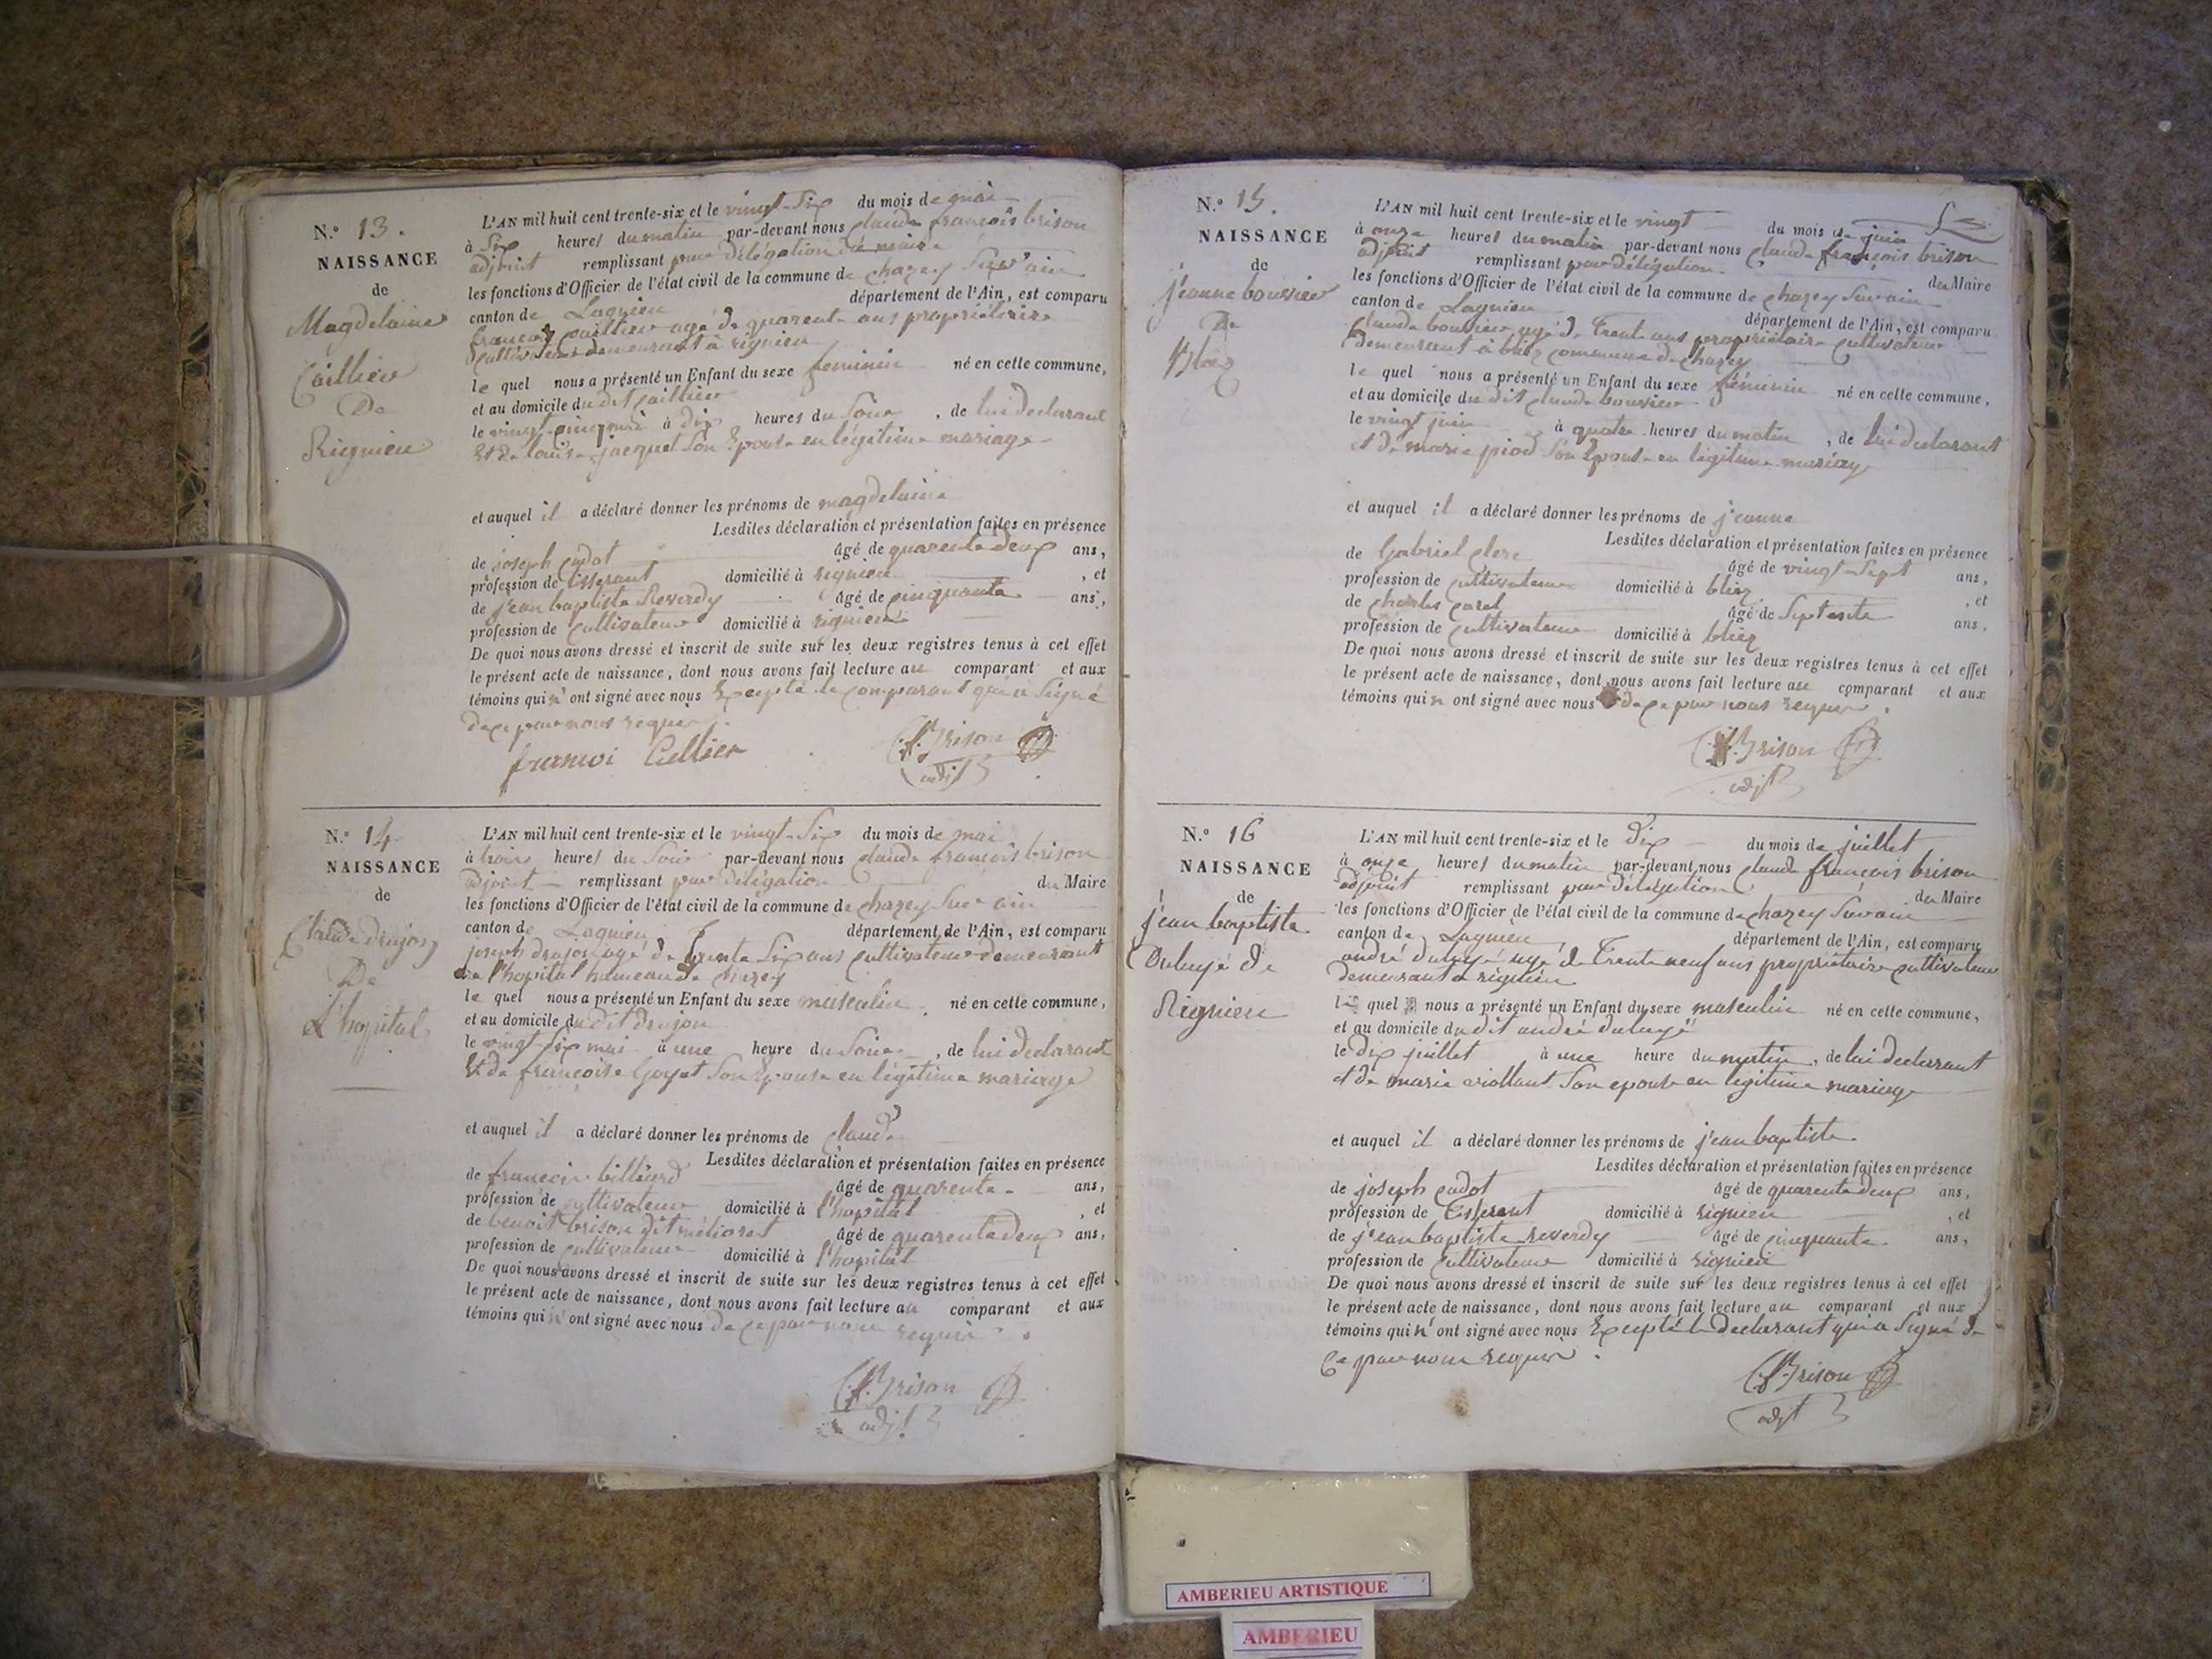 N.º 13.
NAISSANCE
de
Magdelaine
Caillier
De
Rignieu
L'AN mil huit cent trente-six et le vingt-six du mois de mai
à six heures du matin par-devant nous claude françois brison
adjoint remplissant par délégation du maire
les fonctions d'Officier de l'état civil de la commune de chazey sur ain
canton de Lagnieu département de l'Ain, est comparu
françois caillier agé de quarente ans propriétaire
cultivateur demeurant à rignieu
le quel nous a présenté un Enfant du sexe feminin né en cette commune,
et au domicile du dit caillier
le vingt cinq mai à dix heures du soire, de lui declarant
Et de louise jacquet son Epouse en légitime mariage
et auquel il a déclaré donner les prénoms de magdelaine
Lesdites déclaration et présentation faites en présence
de joseph cudot âgé de quarente deux ans,
profession de tisserant domicilié à rignieu, et
de jean baptiste Reverdy âgé de cinquante ans,
profession de cultivateur domicilié à rignieu
De quoi nous avons dressé et inscrit de suite sur les deux registres tenus à cet effet
le présent acte de naissance, dont nous avons fait lecture au comparant et aux
témoins qui n'ont signé avec nous Excepté le comparant qui a signé
de ce par nous requis.
C.f. Brison
adjt
N.º 14
NAISSANCE
de
Claude drujon
De
L'hopital
L'AN mil huit cent trente-six et le vingt-six du mois de mai
à trois heures du soir par-devant nous claude françois brison
adjoint remplissant par délégation du Maire
les fonctions d'Officier de l'état civil de la commune de chazey sur ain
canton de Lagnieu département de l'Ain, est comparu
joseph drujon agé de trente six ans cultivateur demeurant
a l'hopital hameau de chazey
le quel nous a présenté un Enfant du sexe masculin né en cette commune,
et au domicile du dit drujon
le vingt six mai à une heure du soire, de lui declarant
Et de françoise Goyet son Epouse en légitime mariage
et auquel il a déclaré donner les prénoms de claude
Lesdites déclaration et présentation faites en présence
de francois billiard âgé de quarente ans,
profession de cultivateur domicilié à l'hopital, et
de benoit brison dit âgé de quarente deux ans,
profession de cultivateur domicilié à l'hopital
De quoi nous avons dressé et inscrit de suite sur les deux registres tenus à cet effet
le présent acte de naissance, dont nous avons fait lecture au comparant et aux
témoins qui n'ont signé avec nous de ce par nous requis.
C.f. Brison
adjt
N.º 15.
NAISSANCE
de
jeanne bouvier
De
Bliez
L'AN mil huit cent trente-six et le vingt du mois de juin
à onze heures du matin par-devant nous claude françois brison
adjoint remplissant par délégation du Maire
les fonctions d'Officier de l'état civil de la commune de chazey sur ain
canton de Lagnieu département de l'Ain, est comparu
claude bouvier agé de trente ans propriétaire cultivateur
demeurant à bliez commune de chazey
le quel nous a présenté un Enfant du sexe féminin né en cette commune,
et au domicile du dit claude bouvier
le vingt juin à quatre heures du matin, de lui declarant
et de marie piod son Epouse en légitime mariage
et auquel il a déclaré donner les prénoms de jeanne
Lesdites déclaration et présentation faites en présence
de Gabriel clerc âgé de vingt-sept ans,
profession de cultivateur domicilié à bliez, et
de charles carel âgé de septente ans,
profession de cultivateur domicilié à bliez
De quoi nous avons dressé et inscrit de suite sur les deux registres tenus à cet effet
le présent acte de naissance, dont nous avons fait lecture au comparant et aux
témoins qui n ont signé avec nous de ce par nous requis.
C.f. Brison
adjt
N.º 16
NAISSANCE
de
jean baptiste
Duluyé de
Rignieu
L'AN mil huit cent trente-six et le dix du mois de juillet
à onze heures du matin par-devant nous claude françois brison
adjoint remplissant par délégation du Maire
les fonctions d'Officier de l'état civil de la commune de chazey sur ain
canton de Lagnieu département de l'Ain, est comparu
andré duluyé agé de trente neuf ans propriétaire cultivateur
demeurant a rignieu
le quel nous a présenté un Enfant du sexe masculin né en cette commune,
et au domicile du dit andré duluyé
le dix juillet à une heure du matin, de lui declarant
et de marie son epouse en légitime mariage
et auquel il a déclaré donner les prénoms de jean baptiste
Lesdites déclaration et présentation faites en présence
de joseph cudot âgé de quarente deux ans,
profession de tisserant domicilié à rignieu, et
de jean baptiste reverdy âgé de cinquante ans,
profession de cultivateur domicilié à rignieu
De quoi nous avons dressé et inscrit de suite sur les deux registres tenus à cet effet
le présent acte de naissance, dont nous avons fait lecture au comparant et aux
témoins qui n'ont signé avec nous Excepté le declarant qui a signé de
ce par nous requis.
C.f. Brison
adjt
AMBERIEU ARTISTIQUE
AMBERIEU